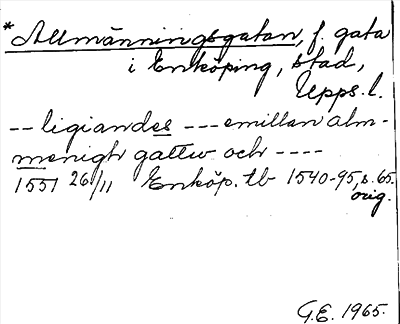 * Allmänningsgatan, f. gata
i Enköping, stad,
Upps. l.
-- ligiandes --- emillan alm-
menigh gattw och ----
1551 26/11 Enköp. tb 1540-95, s. 65.
orig.
G.E. 1965.